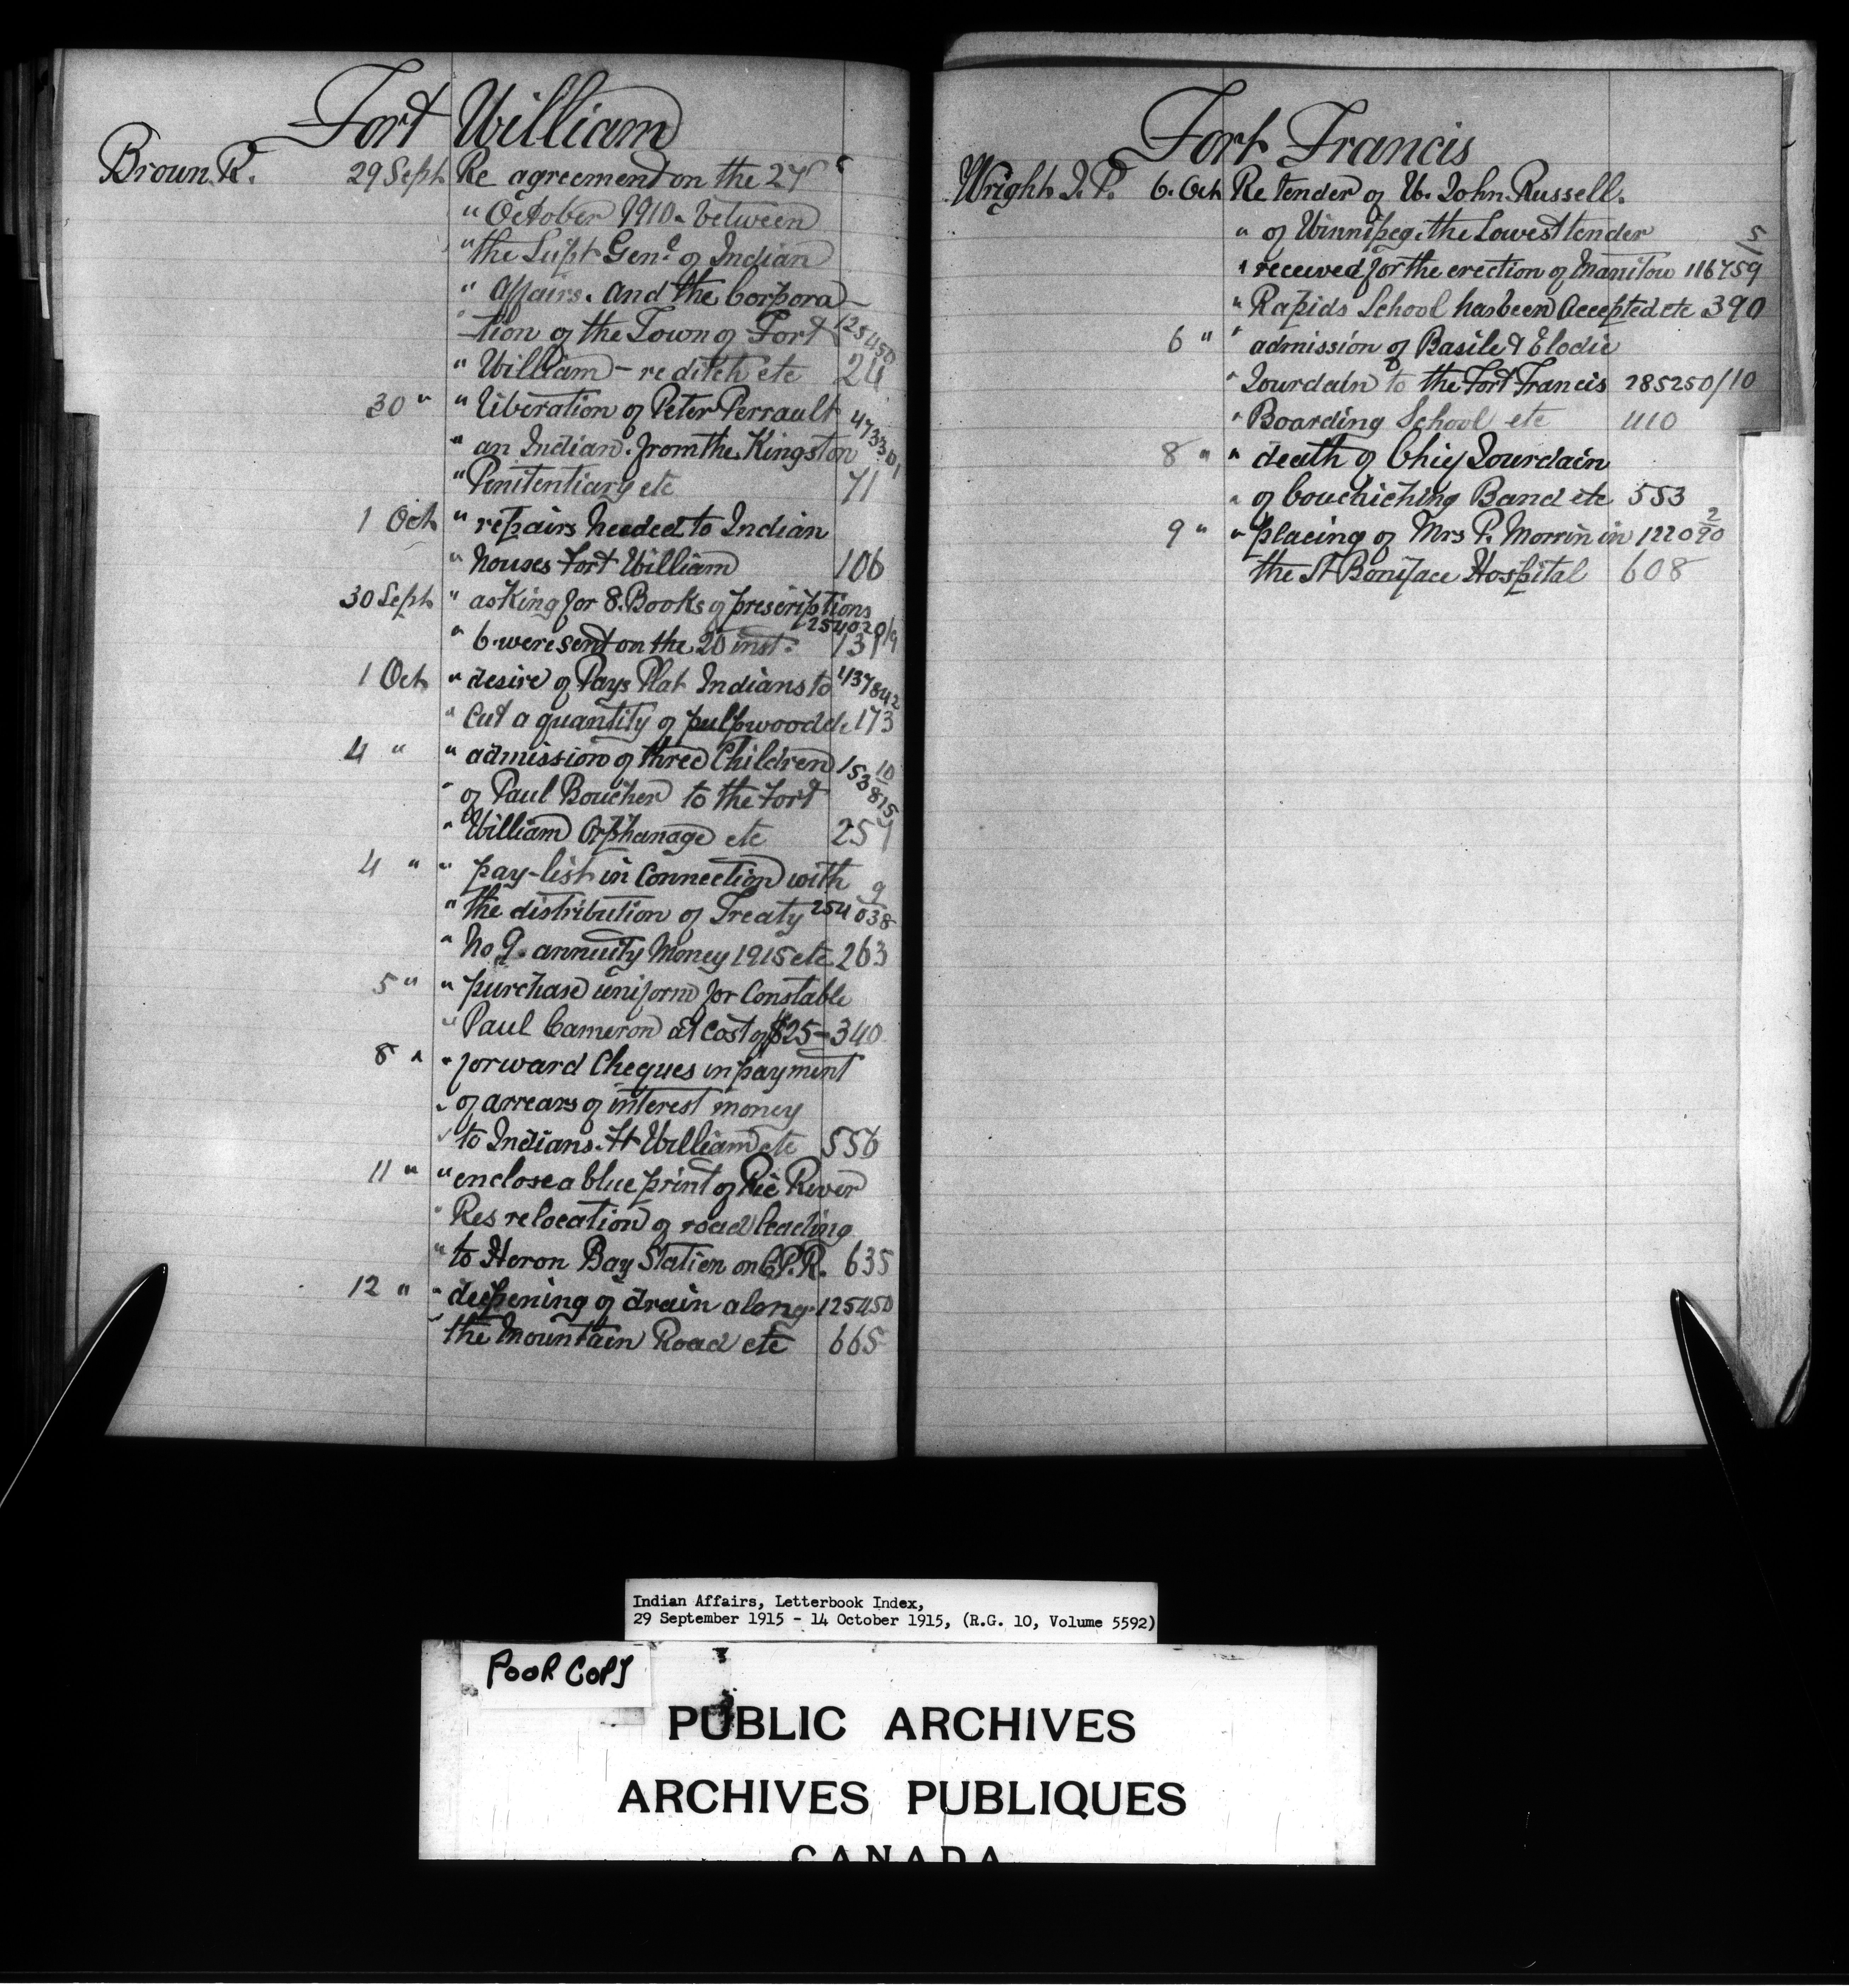 Fort William
Brown R. 29 Sept Re agreement on the 27th
" October 1910. between
" the Supt Genl of Indian
" Affairs. and the Corpora-
" tion of the Town of Fort 125450
" William - re ditch etc 24
30 " " liberation of Peter Perrault 473301
" an Indian. from the Kingston
" Penitentiary etc 71
1 Oct " repairs needed to Indian
" houses Fort William 106
30 Sept " asking for 8. Books of prescriptions
254020/9
" 6 were sent on the 20 inst. 131
1 Oct " desire of Pays Plat Indians to 437842
" Cut a quantity of pulpwood etc 173
4 " " admission of three Children 153815/10
" of Paul Boucher to the Fort
" William Orphanage etc 257
4 " " pay-list in Connection with
" the distribution of Treaty 254038/9
" No 9. annuity Money 1915 etc 263
5 " " purchase uniform for Constable
" Paul Cameron at Cost of $25- 340
8 " " forward Cheques in payment
" of arrears of interest money
" to Indians. Ft William etc 556
11 " " enclose a blue print of Pic River
" Res relocation of road leading
" to Heron Bay Station on C.P.R. 635
12 " " deepening of drain along 125450
" the Mountain Road etc 665
Fort Francis
Wright J. P. 6. Oct Re tender of W. John. Russell.
" of Winnipeg. the Lowest tender
" received for the erection of Manitou 116759/5
" Rapids School has been Accepted etc 390
6 " " admission of Basile & Elodie
" Jourdain to the Fort Francis 285250/10
" Boarding School etc 410
8 " " death of Chief Jourdain
" of Couchiching Band etc 553
9 " " placing of Mrs P. Morrin in 122090/2
the St Boniface Hospital 608
Indian Affairs, Letterbook Index,
29 September 1915 - 14 October 1915, (R.G. 10, Volume 5592)
POOR COPY
PUBLIC ARCHIVES
ARCHIVES PUBLIQUES
CANADA